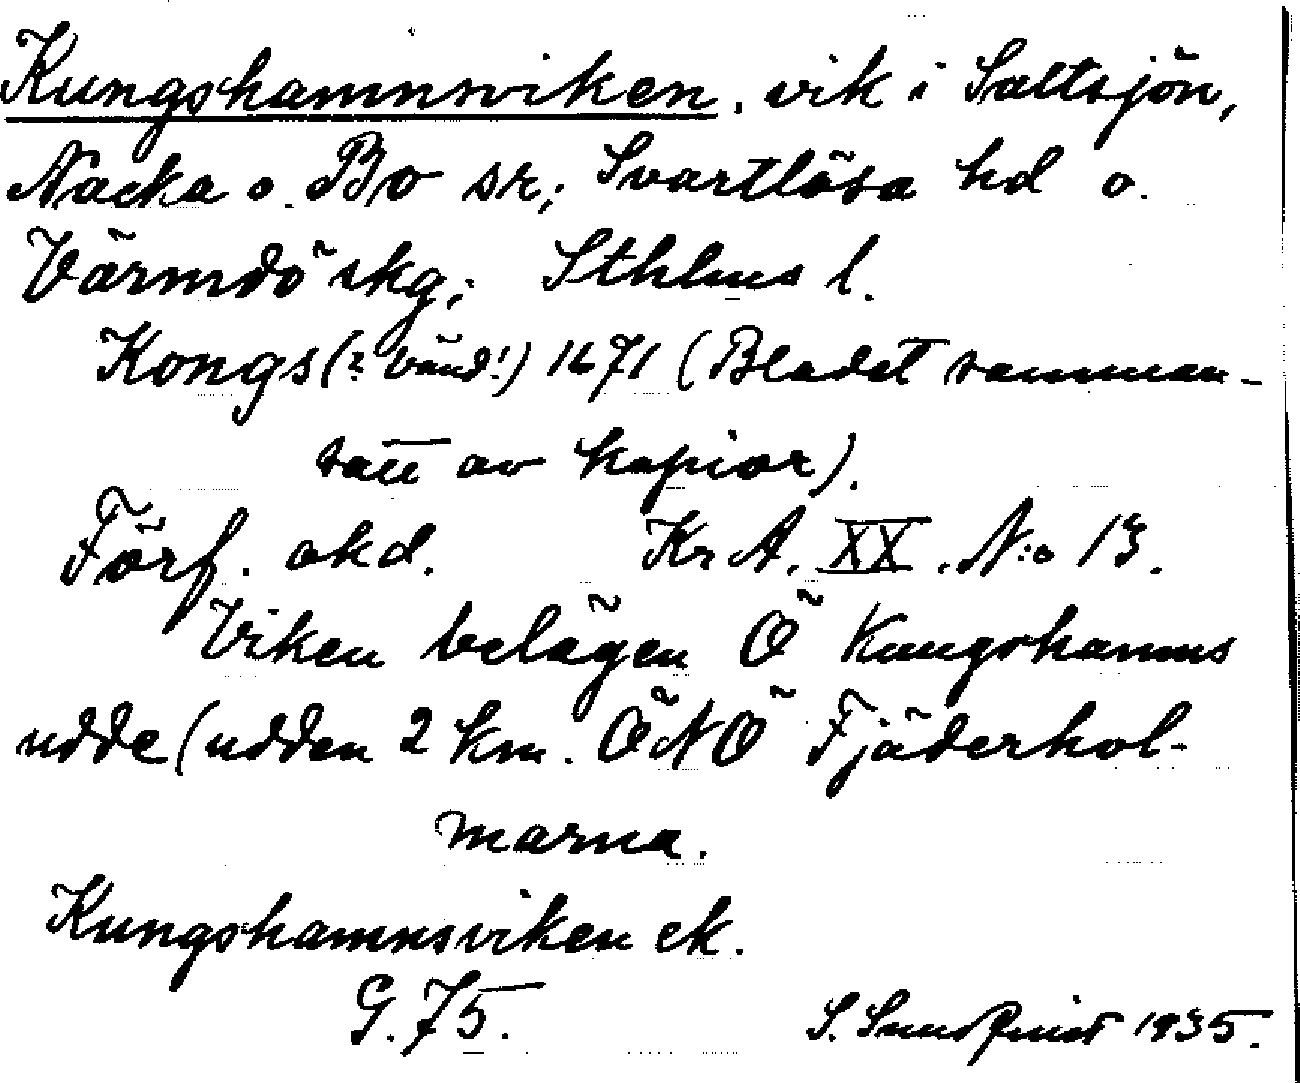 Kungshamnsviken, vik i Saltsjön,
Nacka o. Bo sr; Svartlösa hd o.
Värmdö skg; Sthlms l.
Kongs(? bänd!) 1671 (Bladet samman-
satt av kopior).
Förf. okd. KrA. XX. N:o 13.
Viken belägen Ö Kungshamns
udde (udden 2 km. ÖNÖ Fjäderhol-
marna.
Kungshamnsviken ek.
G. 75. S. Sundquist 1935.